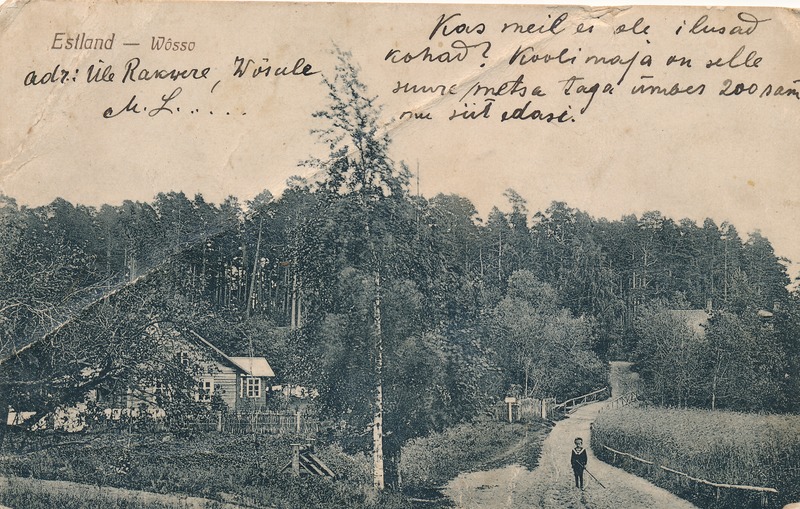 Estland — Wõsso
adr: Üle Rakwere, Wõsule
M. L.....
Kas meil ei ole ilusad
kohad? Koolimaja on selle
suure metsa taga ümbes 200 sam
mu siit edasi.